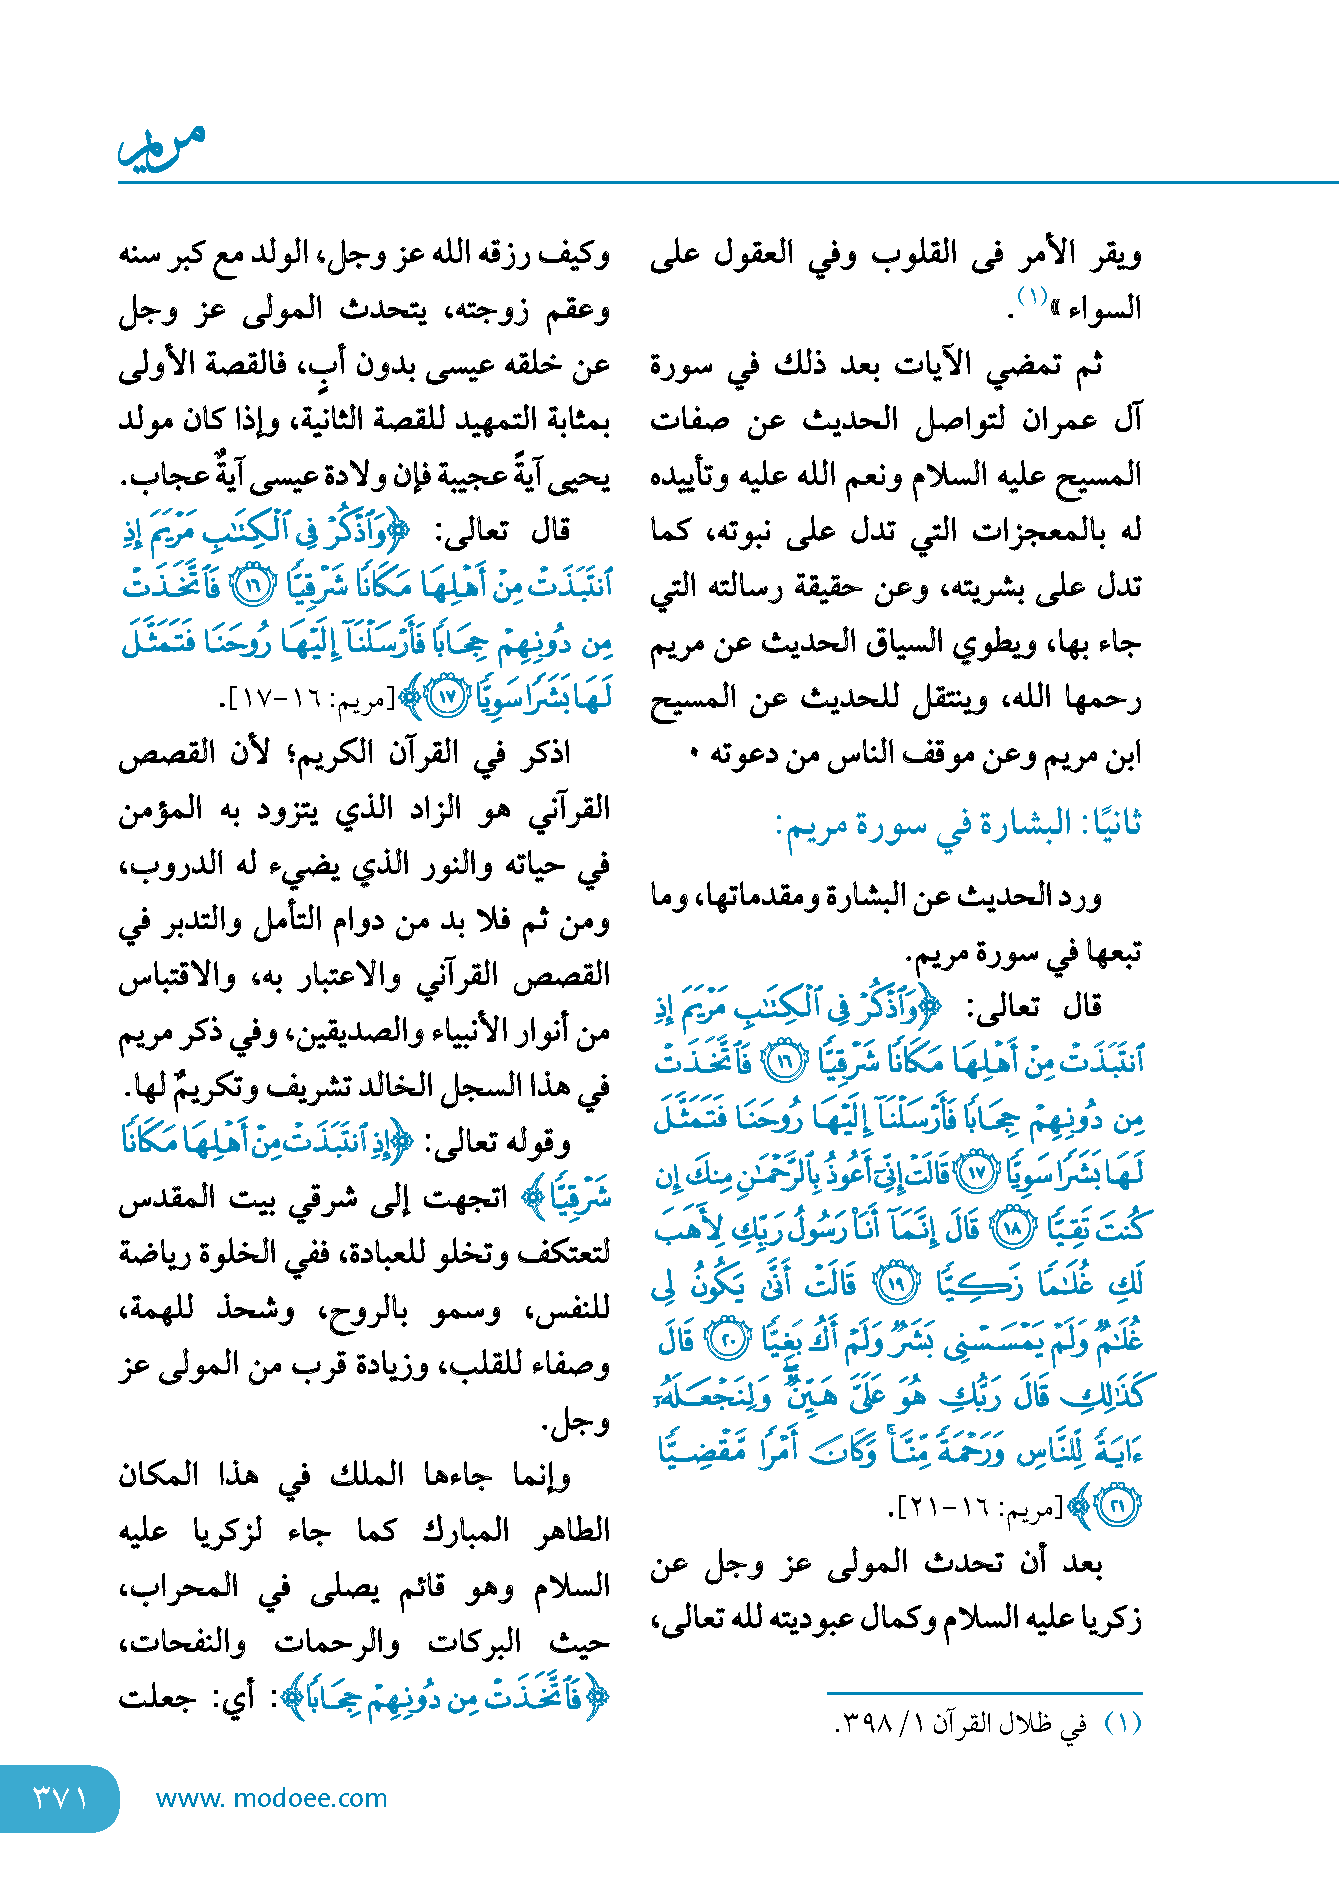 مريم
ويقر الأمر فى القلوب وفي العقول على
السواء»(١).
ثم تمضي الآيات بعد ذلك في سورة
آل عمران لتواصل الحديث عن صفات
المسيح عليه السلام ونعم الله عليه وتأييده
له بالمعجزات التي تدل على نبوته، كما
تدل على بشريته، وعن حقيقة رسالته التي
جاء بها، ويطوي السياق الحديث عن مريم
رحمها الله، وينتقل للحديث عن المسيح
ابن مريم وعن موقف الناس من دعوته ٠
ثانيًا: البشارة في سورة مريم:
ورد الحديث عن البشارة ومقدماتها، وما
تبعها في سورة مريم.
قال تعالى: ﴿وَٱذْكُرْ فِى ٱلْكِتَٰبِ مَرْيَمَ إِذِ
ٱنتَبَذَتْ مِنْ أَهْلِهَا مَكَانًا شَرْقِيًّا ١٦ فَٱتَّخَذَتْ
مِن دُونِهِمْ حِجَابًا فَأَرْسَلْنَآ إِلَيْهَا رُوحَنَا فَتَمَثَّلَ
لَهَا بَشَرًا سَوِيًّا ١٧ قَالَتْ إِنِّىٓ أَعُوذُ بِٱلرَّحْمَٰنِ مِنكَ إِن
كُنتَ تَقِيًّا ١٨ قَالَ إِنَّمَآ أَنَا۠ رَسُولُ رَبِّكِ لِأَهَبَ
لَكِ غُلَٰمًا زَكِيًّا ١٩ قَالَتْ أَنَّىٰ يَكُونُ لِى
غُلَٰمٌ وَلَمْ يَمْسَسْنِى بَشَرٌ وَلَمْ أَكُ بَغِيًّا ٢٠ قَالَ
كَذَٰلِكِ قَالَ رَبُّكِ هُوَ عَلَىَّ هَيِّنٌ ۖ وَلِنَجْعَلَهُۥٓ
ءَايَةً لِّلنَّاسِ وَرَحْمَةً مِّنَّا ۚ وَكَانَ أَمْرًا مَّقْضِيًّا
٢١﴾ [مريم: ١٦-٢١].
بعد أن تحدث المولى عز وجل عن
زكريا عليه السلام وكمال عبوديته لله تعالى،
(١) في ظلال القرآن ١/ ٣٩٨.
وكيف رزقه الله عز وجل، الولد مع كبر سنه
وعقم زوجته، يتحدث المولى عز وجل
عن خلقه عيسى بدون أبٍ، فالقصة الأولى
بمثابة التمهيد للقصة الثانية، وإذا كان مولد
يحيى آيةً عجيبة فإن ولادة عيسى آيةٌ عجاب.
قال تعالى: ﴿وَٱذْكُرْ فِى ٱلْكِتَٰبِ مَرْيَمَ إِذِ
ٱنتَبَذَتْ مِنْ أَهْلِهَا مَكَانًا شَرْقِيًّا ١٦ فَٱتَّخَذَتْ
مِن دُونِهِمْ حِجَابًا فَأَرْسَلْنَآ إِلَيْهَا رُوحَنَا فَتَمَثَّلَ
لَهَا بَشَرًا سَوِيًّا ١٧﴾ [مريم: ١٦-١٧].
اذكر في القرآن الكريم؛ لأن القصص
القرآني هو الزاد الذي يتزود به المؤمن
في حياته والنور الذي يضيء له الدروب،
ومن ثم فلا بد من دوام التأمل والتدبر في
القصص القرآني والاعتبار به، والاقتباس
من أنوار الأنبياء والصديقين، وفي ذكر مريم
في هذا السجل الخالد تشريف وتكريمٌ لها.
وقوله تعالى: ﴿إِذِ ٱنتَبَذَتْ مِنْ أَهْلِهَا مَكَانًا
شَرْقِيًّا﴾ اتجهت إلى شرقي بيت المقدس
لتعتكف وتخلو للعبادة، ففي الخلوة رياضة
للنفس، وسمو بالروح، وشحذ للهمة،
وصفاء للقلب، وزيادة قرب من المولى عز
وجل.
وإنما جاءها الملك في هذا المكان
الطاهر المبارك كما جاء لزكريا عليه
السلام وهو قائم يصلى في المحراب،
حيث البركات والرحمات والنفحات،
﴿فَٱتَّخَذَتْ مِن دُونِهِمْ حِجَابًا﴾: أي: جعلت
www. modoee.com
٣٧١